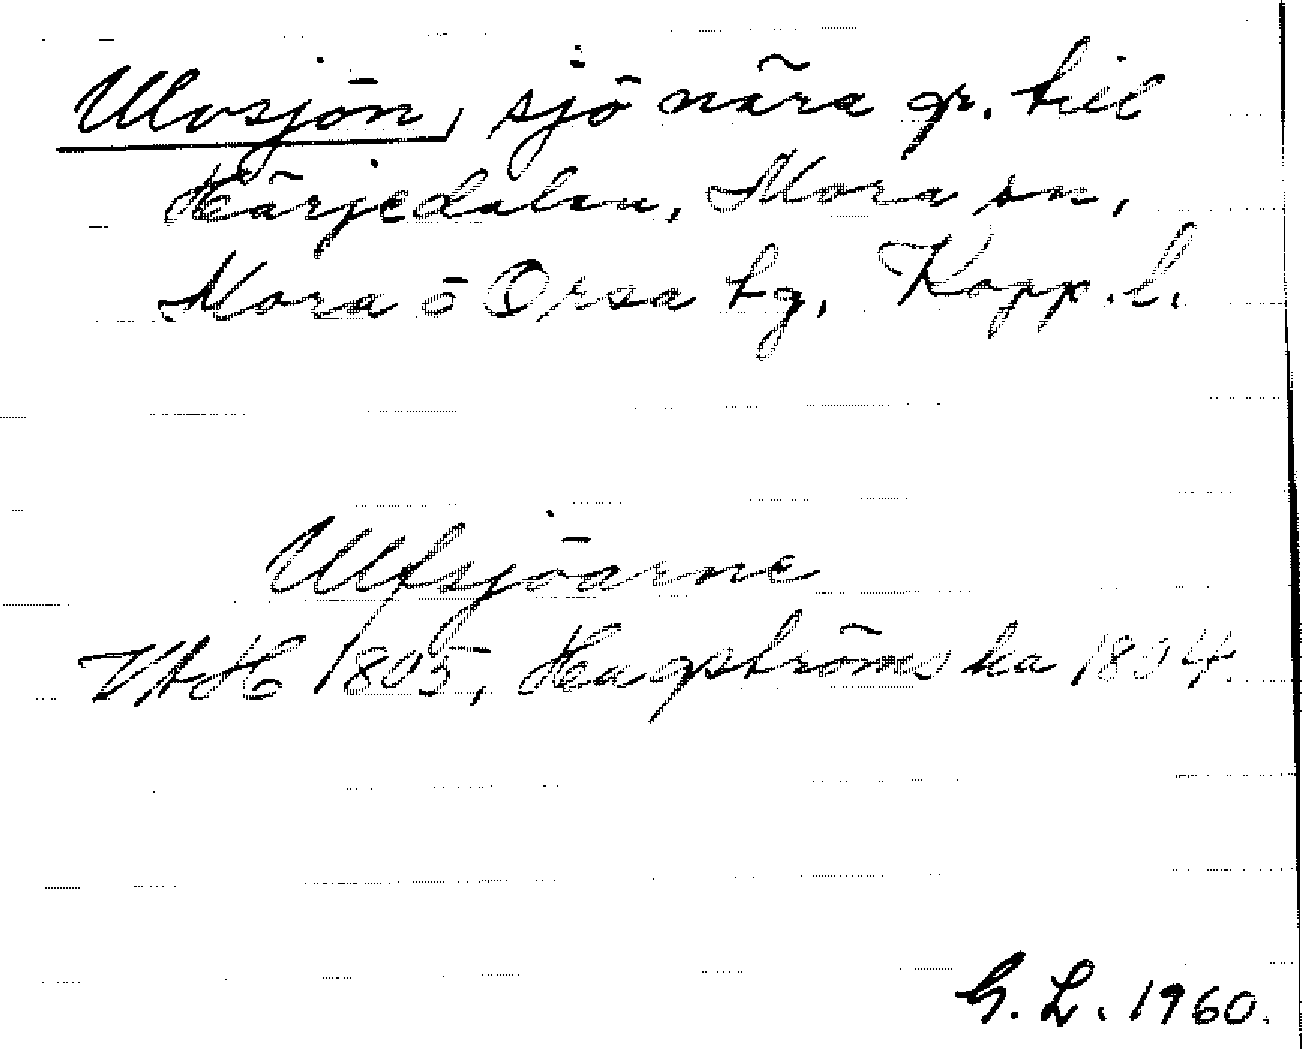 Ulvsjön, sjö nära gr. till
Härjedalen, Mora sn,
Mora o Orsa tg, Kopp. l.
Ulfsjöarne
VAH 1805, Hagströms ka 1804.
G. L. 1960.